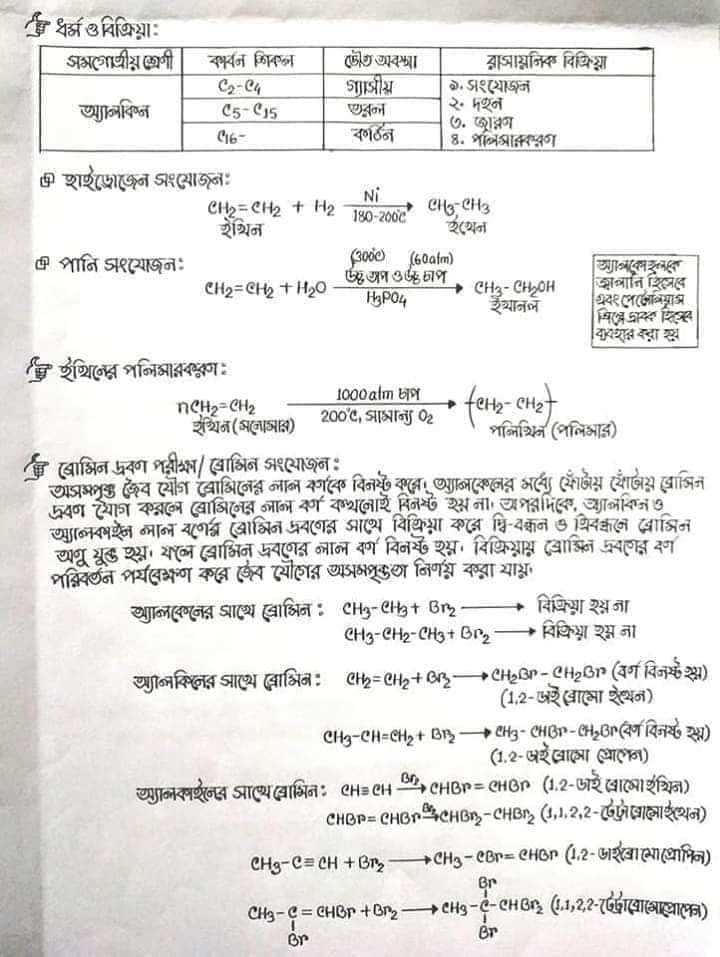 ধর্ম ও বিক্রিয়া:
সমগোত্রীয় শ্রেণী | কার্বন শিকল | ভৌত অবস্থা | রাসায়নিক বিক্রিয়া
অ্যালকিন | C₂-C₄ | গ্যাসীয় | ১. সংযোজন
C₅-C₁₅ | তরল | ২. দহন
৩. জারণ
C₁₆- | কঠিন | ৪. পলিমারকরণ
হাইড্রোজেন সংযোজন:
Ni
CH₂=CH₂ + H₂ ⟶ CH₃-CH₃
180-200°C
ইথিন ইথেন
পানি সংযোজন:
(300°C) (60atm)
উচ্চ তাপ ও উচ্চ চাপ
CH₂=CH₂ + H₂O ⟶ CH₃-CH₂OH
H₃PO₄ ইথানল
অ্যালকোহলকে
জ্বালানি হিসেবে
এবং পেট্রোলিয়াম
শিল্পে দ্রাবক হিসেবে
ব্যবহার করা হয়
ইথিনের পলিমারকরণ:
1000atm চাপ
nCH₂=CH₂ ⟶ (CH₂-CH₂)
200°C, সামান্য O₂
ইথিন (মনোমার) পলিথিন (পলিমার)
ব্রোমিন দ্রবণ পরীক্ষা/ব্রোমিন সংযোজন:
অসম্পৃক্ত জৈব যৌগ ব্রোমিনের লাল বর্ণকে বিনষ্ট করে। অ্যালকেনের মধ্যে ফোঁটায় ফোঁটায় ব্রোমিন
দ্রবণ যোগ করলে ব্রোমিনের লাল বর্ণ কখনোই বিনষ্ট হয় না। অপরদিকে, অ্যালকিন ও
অ্যালকাইন লাল বর্ণের ব্রোমিন দ্রবণের সাথে বিক্রিয়া করে দ্বি-বন্ধন ও ত্রিবন্ধনে ব্রোমিন
অণু যুক্ত হয়। ফলে ব্রোমিন দ্রবণের লাল বর্ণ বিনষ্ট হয়। বিক্রিয়ায় ব্রোমিন দ্রবণের বর্ণ
পরিবর্তন পর্যবেক্ষণ করে জৈব যৌগের অসম্পৃক্ততা নির্ণয় করা যায়।
অ্যালকেনের সাথে ব্রোমিন: CH₃-CH₃ + Br₂ ⟶ বিক্রিয়া হয় না
CH₃-CH₂-CH₃ + Br₂ ⟶ বিক্রিয়া হয় না
অ্যালকিনের সাথে ব্রোমিন: CH₂=CH₂ + Br₂ ⟶ CH₂Br-CH₂Br (বর্ণ বিনষ্ট হয়)
(1,2-ডাই ব্রোমো ইথেন)
CH₃-CH=CH₂ + Br₂ ⟶ CH₃-CHBr-CH₂Br (বর্ণ বিনষ্ট হয়)
(1,2-ডাই ব্রোমো প্রোপেন)
অ্যালকাইনের সাথে ব্রোমিন: CH≡CH ⟶ Br₂ CHBr=CHBr (1,2-ডাই ব্রোমো ইথিন)
CHBr=CHBr ⟶ Br₂ CHBr₂-CHBr₂ (1,1,2,2-টেট্রা ব্রোমো ইথেন)
CH₃-C≡CH + Br₂ ⟶ CH₃-CBr=CHBr (1,2-ডাইব্রোমোপ্রোপিন)
Br
CH₃-C=CHBr + Br₂ ⟶ CH₃-C-CHBr₂ (1,1,2,2-টেট্রাব্রোমোপ্রোপেন)
Br Br